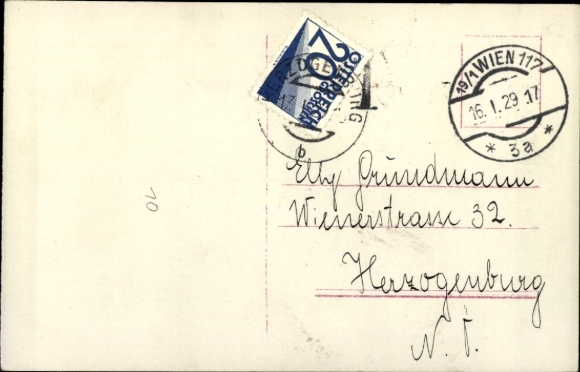 20
ÖSTERREICH
HERZOGENBURG
17
b
19/1 WIEN 117
16.I.29 17
* 3a *
Elly Grundmann
Wienerstrasse 32.
Herzogenburg
N. Ö.
70